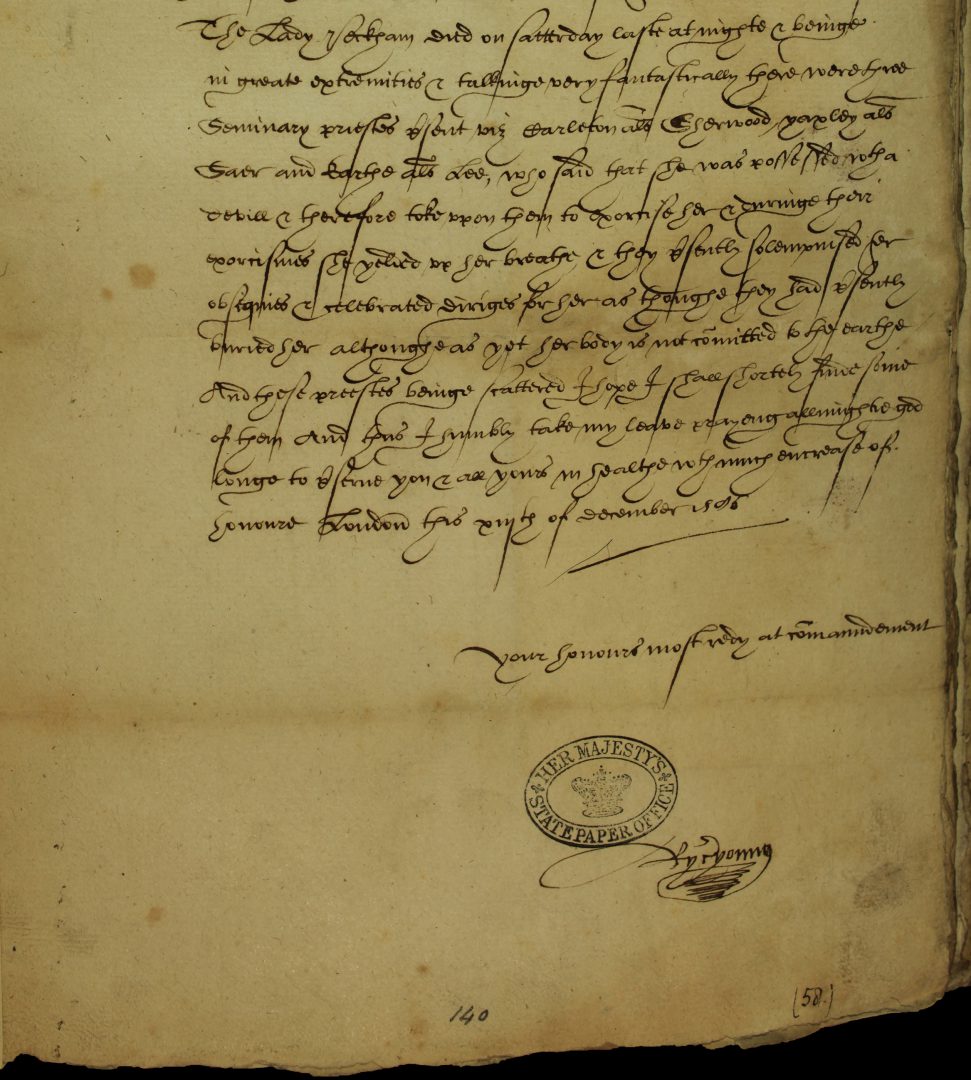 The Lady Peckham died on satterday laste at nighte & beinge
in greate extremities & talkinge very fantastically there were three
Seminary priestes psent viz Earleton als Sherwood, yaxley als
Saer and Earthe als Lee, who said that she was possessed wth a
devill & therefore toke vpon them to exorcise her & duringe their
exorcismes she yelded vp her breathe, & they psently solempnised her
obsequies & celebrated diriges for her as thoughe they had psently
buried her althoughe as yet her body is not comitted to the earthe
And these preestes beinge scattered I hope I shall shortely finde some
of them And thus I humbly take my leave prayeng allmightie god
longe to pserue you & all yours in healthe wth much encrease of
honoure London this xiijth of december 1586
your honours most redy at comaundement
HER MAJESTY'S STATE PAPER OFFICE
Ryc young
140
(58.)